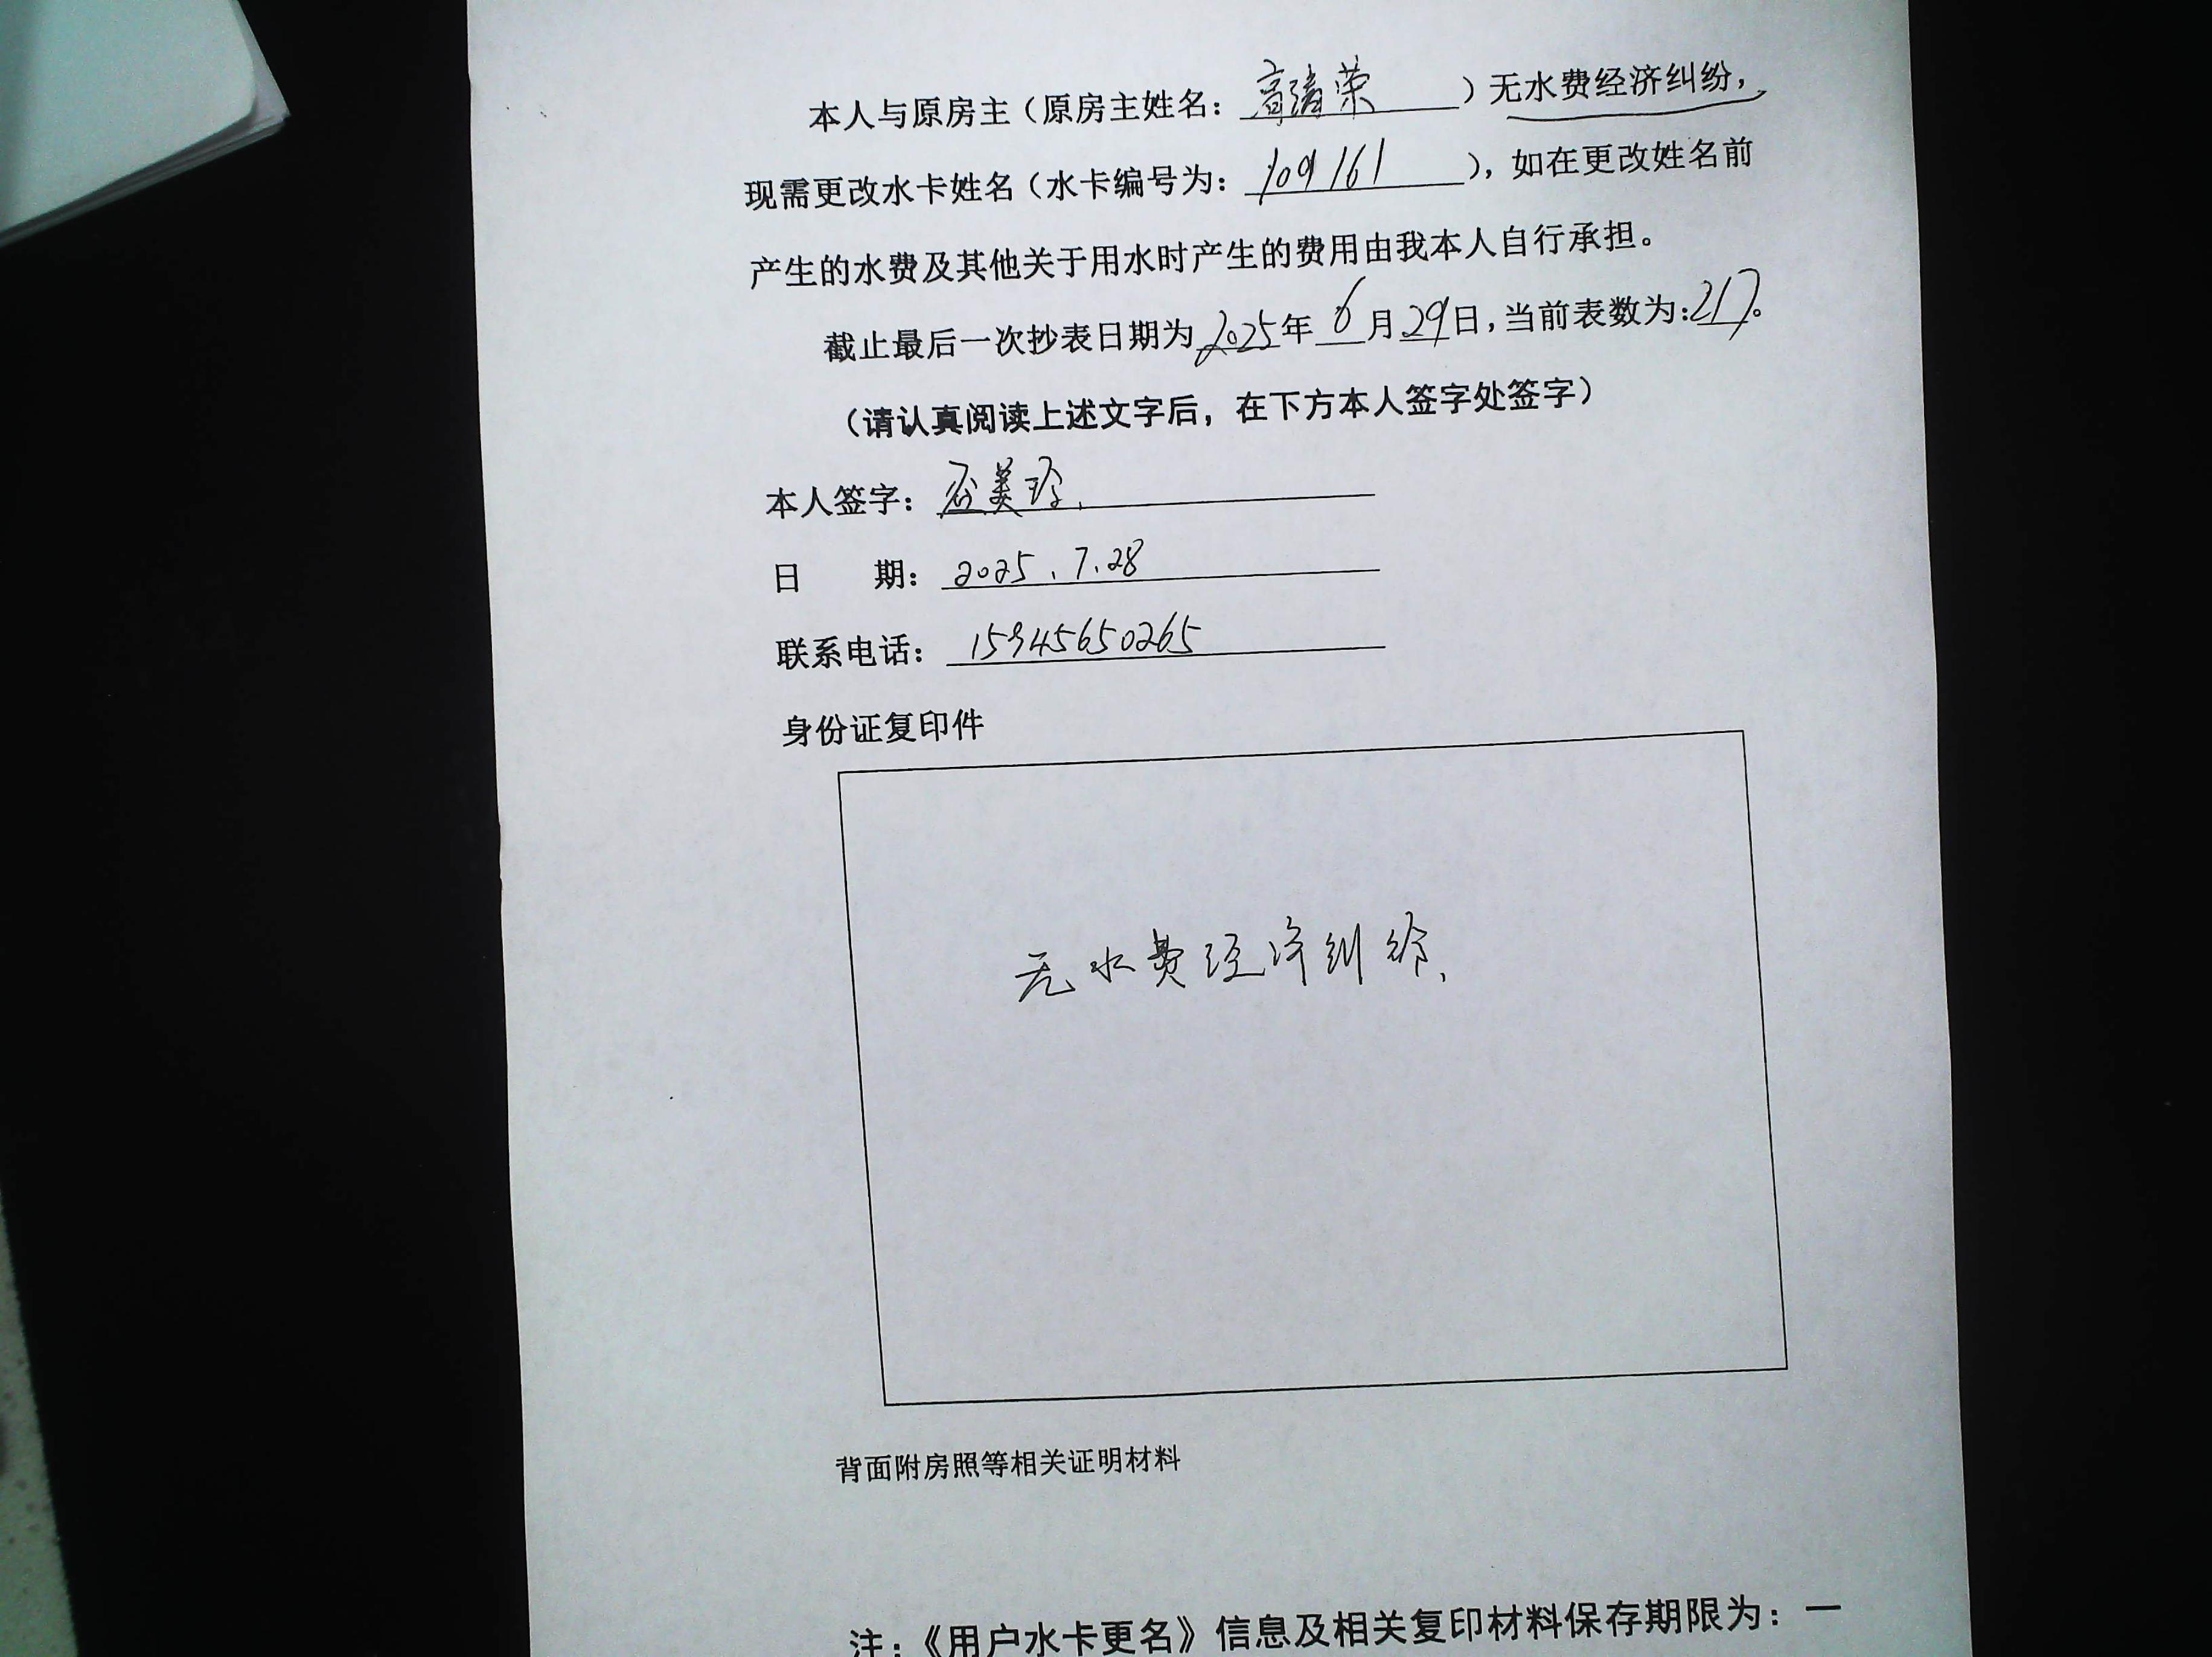 本人与原房主（原房主姓名：高清荣）无水费经济纠纷，
现需更改水卡姓名（水卡编号为：109161），如在更改姓名前
产生的水费及其他关于用水时产生的费用由我本人自行承担。
截止最后一次抄表日期为2025年6月29日，当前表数为：217。
（请认真阅读上述文字后，在下方本人签字处签字）
本人签字：美玲
日期：2025.7.28
联系电话：15945650265
身份证复印件
无水费经济纠纷、
背面附房照等相关证明材料
注：《用户水卡更名》信息及相关复印材料保存期限为：一